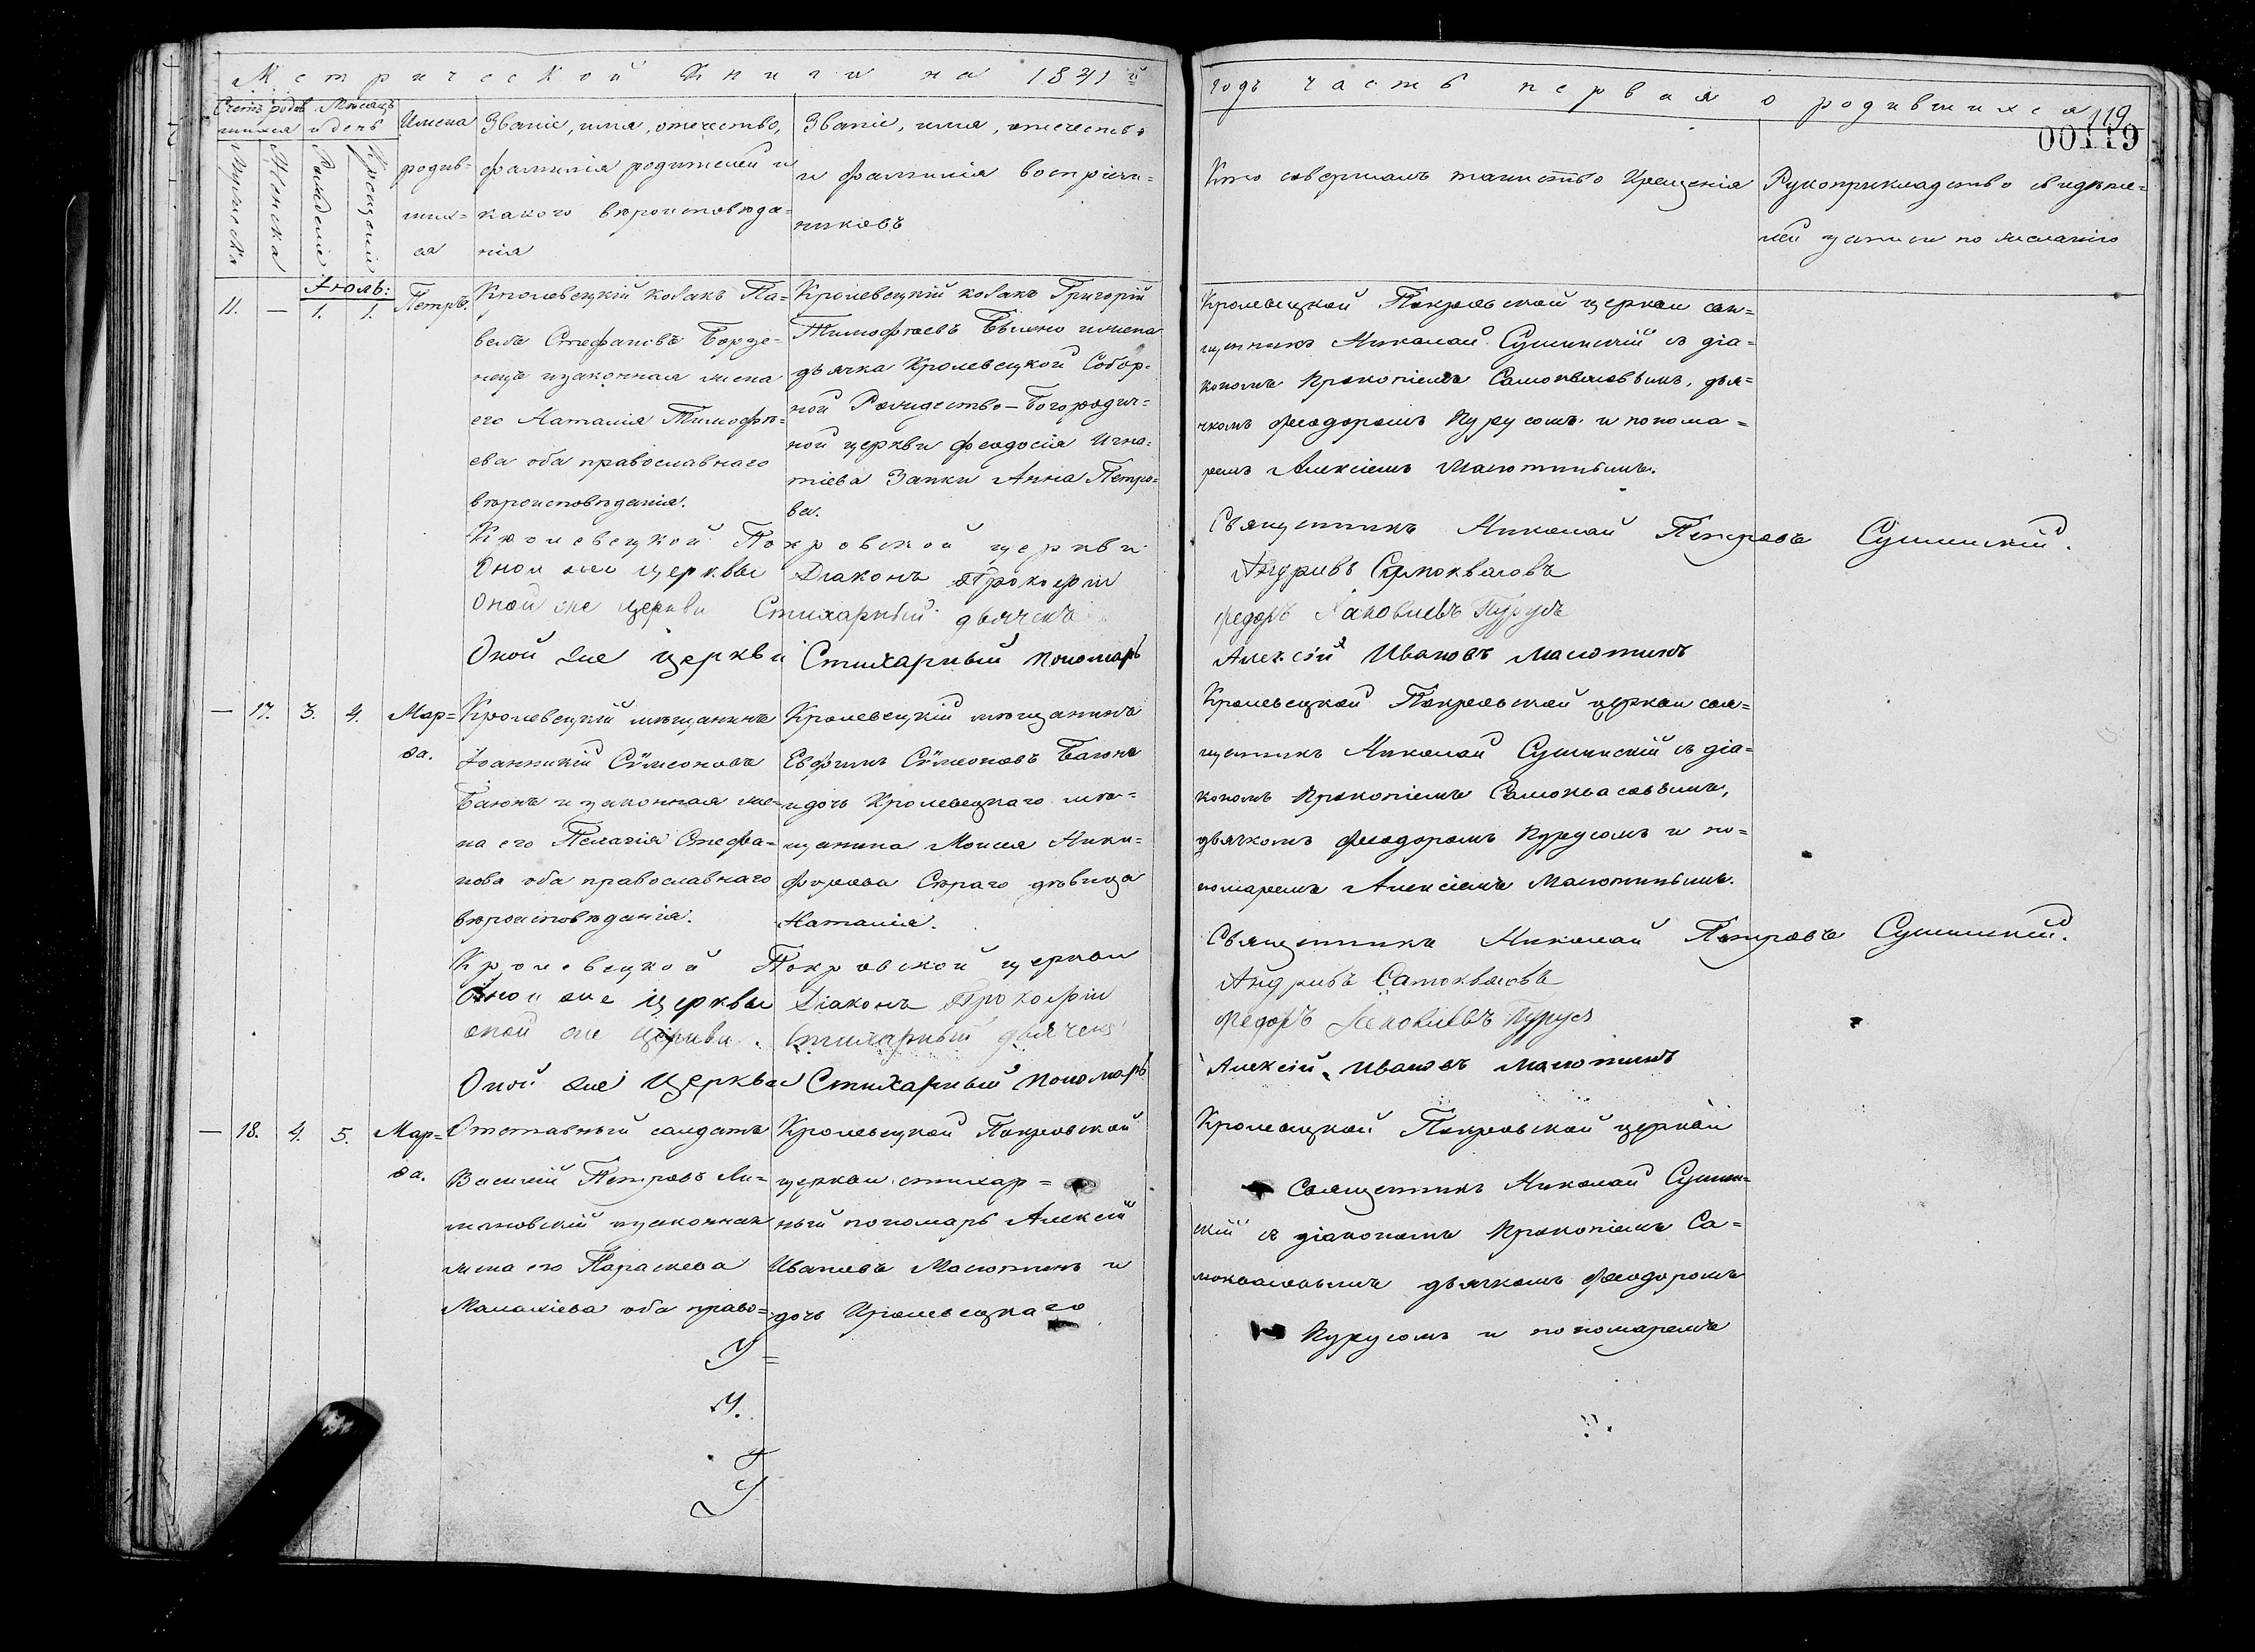 Метрической Книги на 1841й
годъ часть первая о родившихся
119
00119
Счетъ родив-
шихся
Мѣсяцъ
и день
Мужеска
Женска
Рожденія
Крещенія
Имена
родив-
ших-
ся
Званіе, имя, отечество,
фамилія родителей и
какого вѣроисповѣда-
нія
Званіе, имя, отечество
и фамилія воспріем-
никовъ
Кто совершалъ таинство Крещенія
Рукоприкладство свидѣте-
лей записи по желанію
Іюль:
11. — 1. 1. Петръ.
Кролевецкій козакъ Па-
велъ Стефановъ
и законная жена
его Наталія Тимофѣ-
ева оба православнаго
вѣроисповѣданія.
Кролевецкій козакъ Григорій
Тимофѣевъ и жена
дьячка Кролевецкой Собор-
ной Рождество-Богородич-
ной церкви Феодосія Игна-
тіева Заики Анна Петро-
ва.
Кролевецкой Покровской церкви свя-
щенникъ Николай Сушинскій съ діа-
кономъ Прокопіемъ Самоквасовымъ, дья-
чкомъ Феодоромъ Пурусомъ и понома-
ремъ Алексіемъ Малютинымъ.
Кролевецкой Покровской церкви
Священникъ Николай Петровъ Сушинскій.
Оной же церквы Діаконъ Прокофій
Андріевъ Самоквасовъ
Оной же Церкви Стихарный дьячекъ
Федоръ Яковлевъ Пурусъ
Оной же Церкви Стихарный Пономарь
Алексій Ивановъ Малютинъ
— 17. 3. 4. Мар-
ѳа.
Кролевецкій мѣщанинъ
Іоанникій Сѵмеоновъ
Баюнъ и законная же-
на его Пелагія Стефа-
нова оба православнаго
вѣроисповѣданія.
Кролевецкій мѣщанинъ
Евфимъ Сѵмеоновъ Баюнъ
и дочь Кролевецкаго мѣ-
щанина Моисея Ники-
форова Сѣраго дѣвица
Наталія.
Кролевецкой Покровской церкви свя-
щенникъ Николай Сушинскій съ діа-
кономъ Прокопіемъ Самоквасовымъ,
дьячкомъ Феодоромъ Пурусомъ и по-
номаремъ Алексіемъ Малютинымъ.
Кролевецкой Покровской церкви
Священникъ Николай Петровъ Сушинскій.
Оной же церквы Діаконъ Прокофій
Андріевъ Самоквасовъ
оной же Церкви. Стихарный дьячекъ
Федоръ Яковлевъ Пурусъ
Оной же Церквы Стихарный Пономарь
Алексій Ивановъ Малютинъ
— 18. 4. 5. Мар-
ѳа.
Отставный солдатъ
Василій Петровъ
и законная
жена его Параскева
Малахіева оба право-
Кролевецкой Покровской
церкви стихар-
ный пономарь Алексій
Ивановъ Малютинъ и
дочь Кролевецкаго
Кролевецкой Покровской церкви
Священникъ Николай Сушин-
скій съ діакономъ Прокопіемъ Са-
моквасовымъ дьячкомъ Феодоромъ
Пурусомъ и пономаремъ